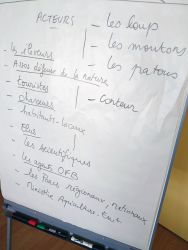 ACTEURS
- les loup
- les moutons
- les patous
- les éleveurs
- Assos défense de la nature
- touristes
- chasseurs
- Conteur
- habitants locaux
- Elus
- les scientifiques
- les agents OFB
- les Parcs régionaux, Nationaux
- Ministre Agriculture